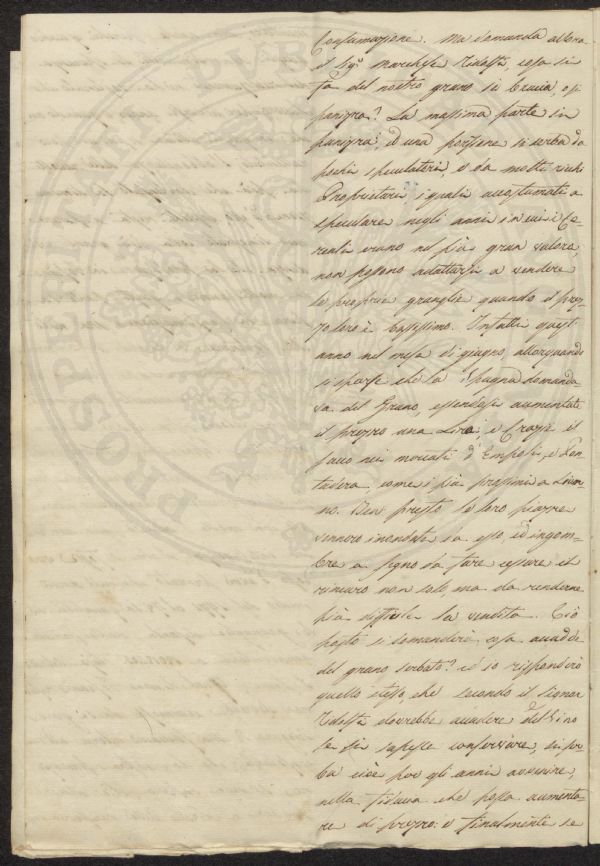 Consumazione. Ma domanda allora
il Sig.e Marchese Ridolfi, cosa si
fa del nostro grano si brucia, o si
panizza? La massima parte si
panizza; ed una porzione si serba da
pochi speculatori, e da molti ricchi
Proprietari i quali accostumati a
speculare negli anni in cui i Ce-
reali erano nel più gran valore,
non possono adattarsi a vendere
le proprie granaglie quando il prez-
zo loro è bassissimo. Infatti quest'
anno nel mese di giugno, allorquando
si sparse che la Spagna domanda-
va del Grano, essendosi aumentato
il prezzo una Lira, e Crazie il
sacco nei mercati d'Empoli, e Pon-
tadera, come i più prossimi a Livor-
no. Ben presto le loro piazze
vennero inondate da esso, ed ingom-
bre a segno da fare cessare il
rincaro non solo, ma da renderne
più difficile la vendita. Ciò
posto si domanderà cosa accadde
del grano serbato? ed io risponderò
quello stesso, che secondo il Signor
Ridolfi dovrebbe accadere del Vino
se si sapesse conservare, si ser-
ba cioè per gli anni avvenire,
nella fiducia che possa aumenta-
re di prezzo: e finalmente se
PROSPERITATI PVB